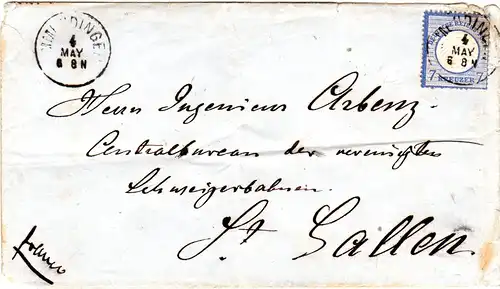 4
MAY
6 8 N
4
MAY
6 8 N
7 KREUZER 7
Herrn Ingenieur Arbenz
Centralbureau der vereinigten
Schweizerbahnen.
St. Gallen.
franco